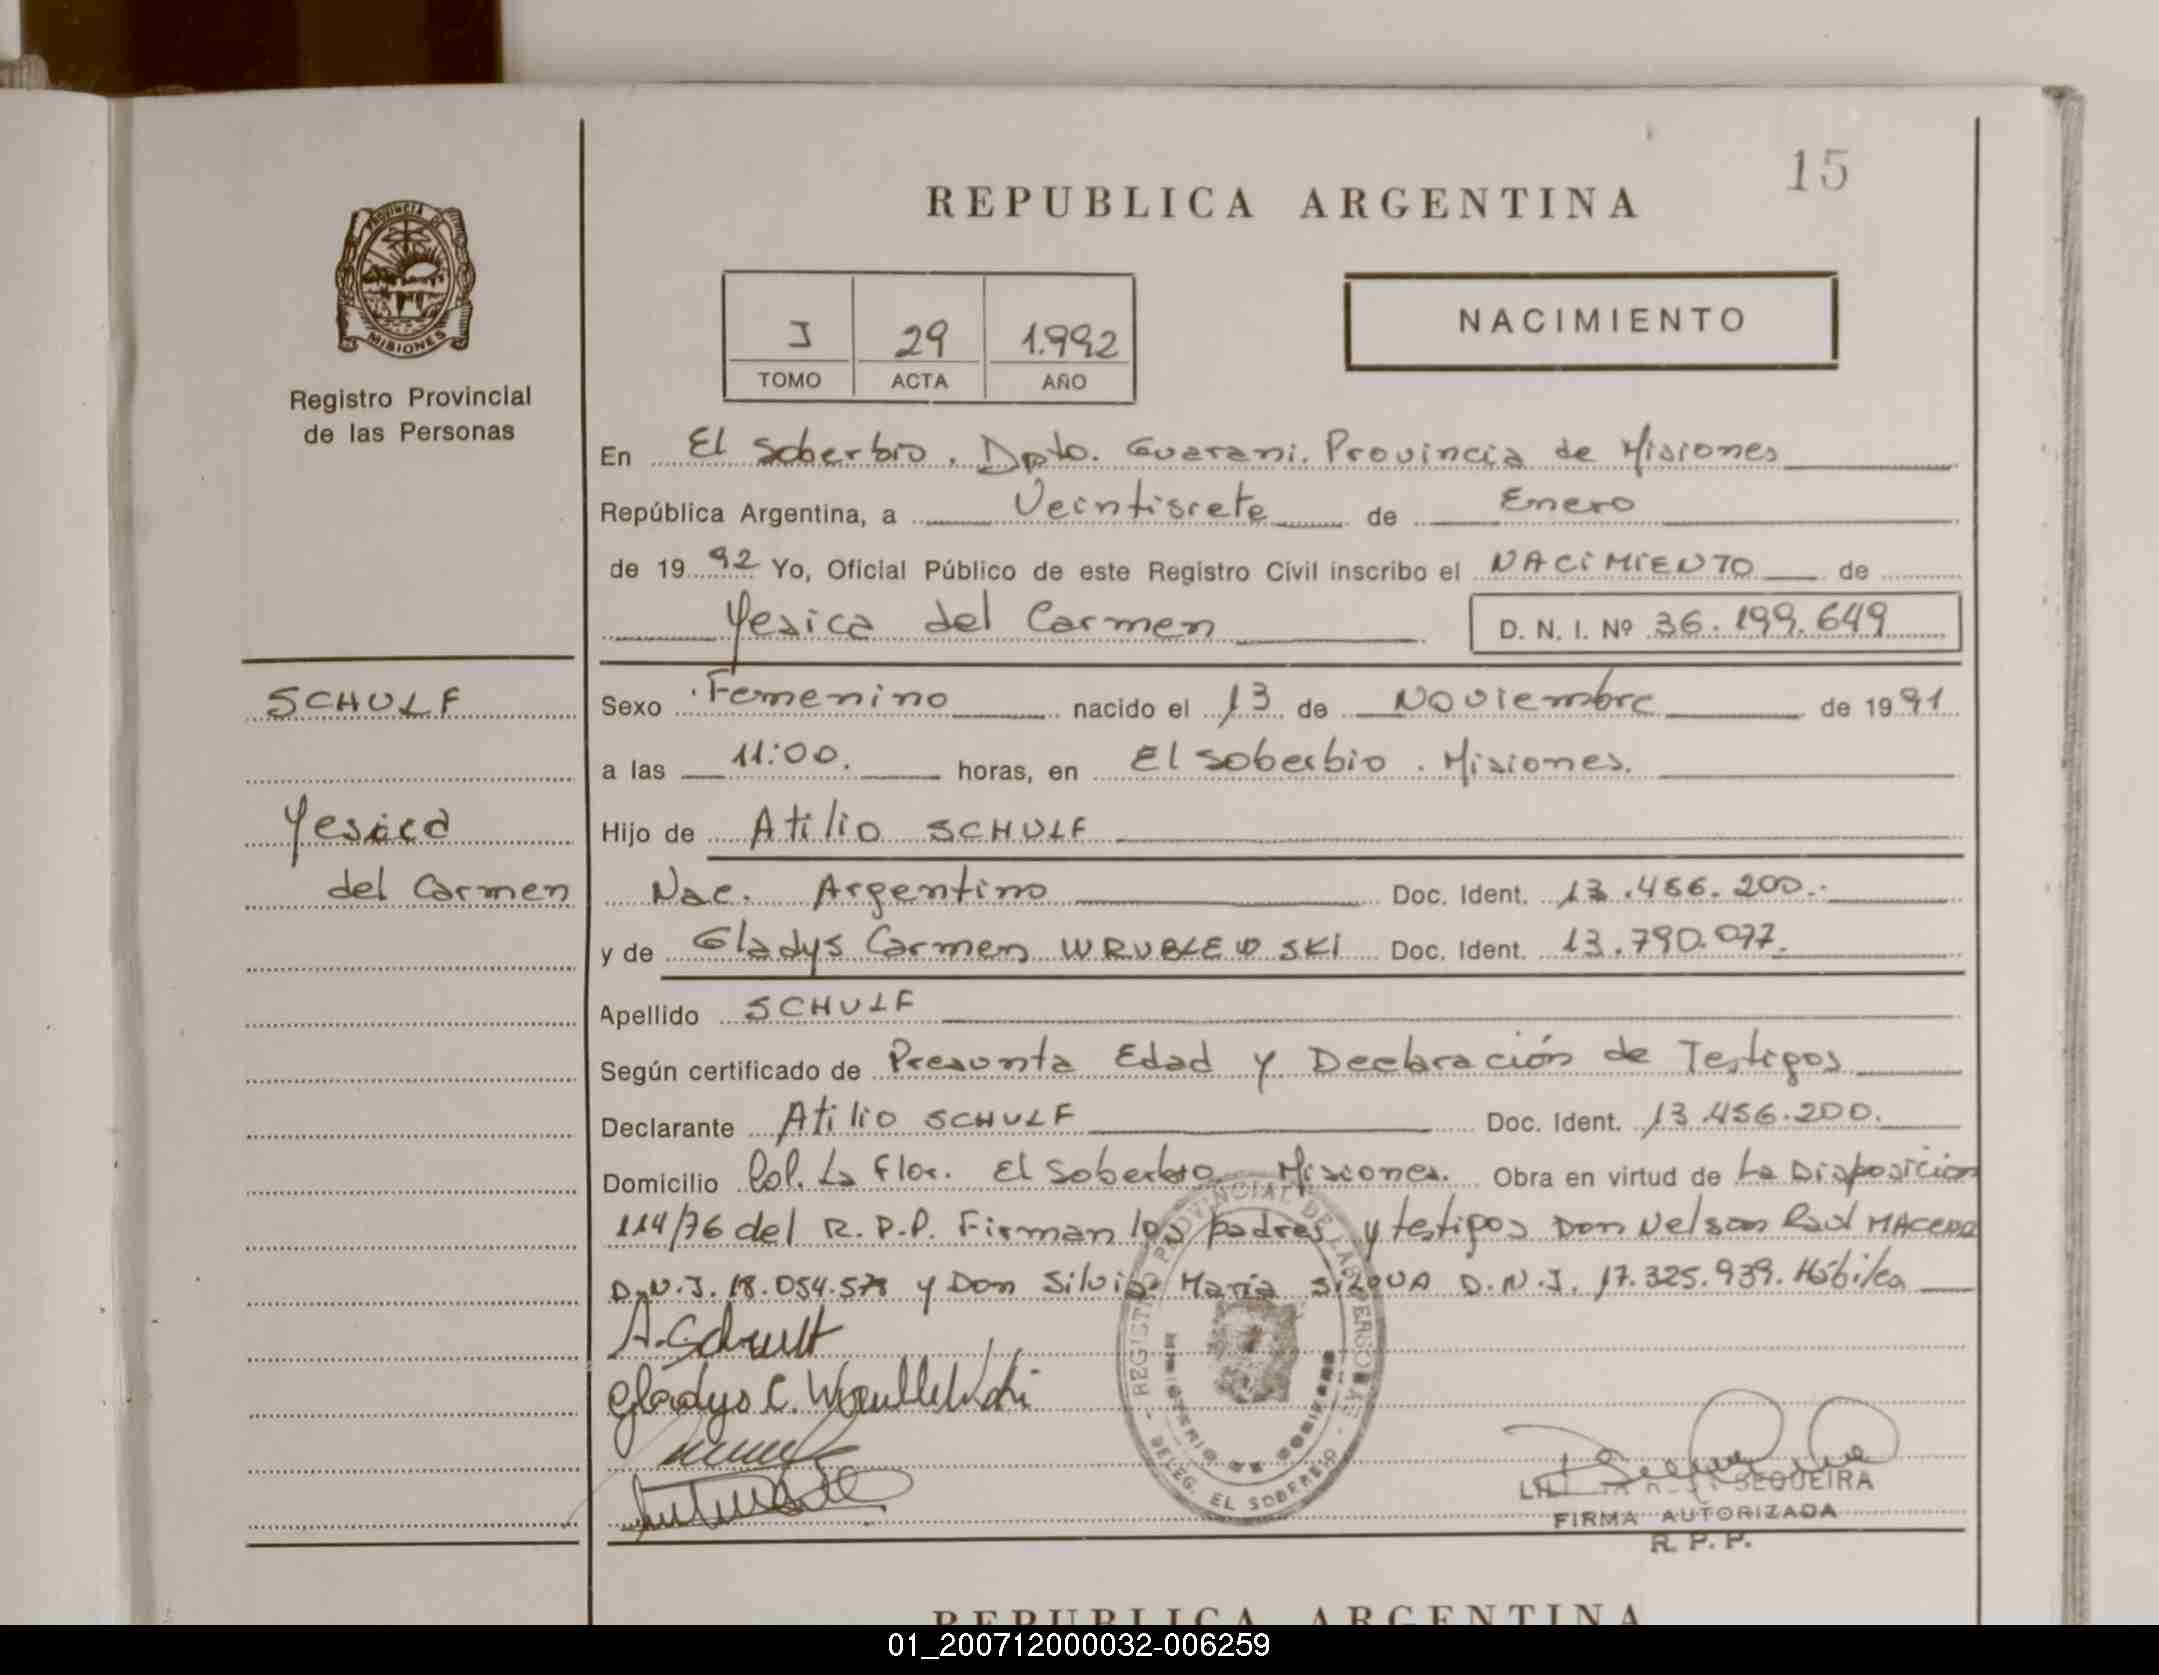 15
REPUBLICA ARGENTINA
PROVINCIA DE
MISIONES
Registro Provincial
de las Personas
I 29 1.992
TOMO ACTA AÑO
NACIMIENTO
En El Soberbio. Dpto. Guarani. Provincia de Misiones
República Argentina, a Veintisiete de Enero
de 1992 Yo, Oficial Público de este Registro Civil inscribo el NACIMIENTO de
Yesica del Carmen D. N. I. Nº 36.199.649
SCHULF
Yesica
del Carmen
Sexo Femenino nacido el 13 de Noviembre de 1991
a las 11:00. horas, en El Soberbio. Misiones.
Hijo de Atilio SCHULF
Nac. Argentino Doc. Ident. 13.456.200.
y de Gladys Carmen WRUBLEWSKI Doc. Ident. 13.790.077.
Apellido SCHULF
Según certificado de Presunta Edad y Declaración de Testigos
Declarante Atilio SCHULF Doc. Ident. 13.456.200.
Domicilio Col. La Flor. El Soberbio Misiones. Obra en virtud de La Disposicion
114/76 del R.P.P. Firman los padres y testigos Don Nelson Raul MACEDO
D.N.I. 18.054.578 y Don Silvio María D.N.I. 17.325.939. Hábiles
A. Schulf
Gladys C. Wrublewski
REGISTRO PROVINCIAL DE LAS PERSONAS
MINISTERIO DE GOBIERNO
DELEG. EL SOBERBIO
SEQUEIRA
FIRMA AUTORIZADA
R. P. P.
REPUBLICA ARGENTINA
01_200712000032-006259